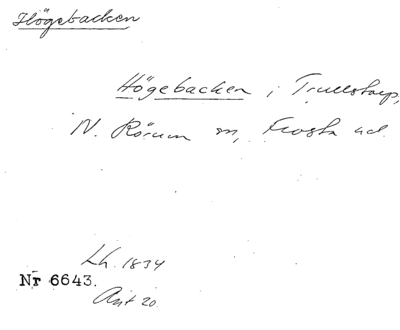 Högebacken
Högebacken i Trullstorp,
N. Rörum sn, Frosta hd.
Lh. 1834
Nr 6643.
Akt 20.